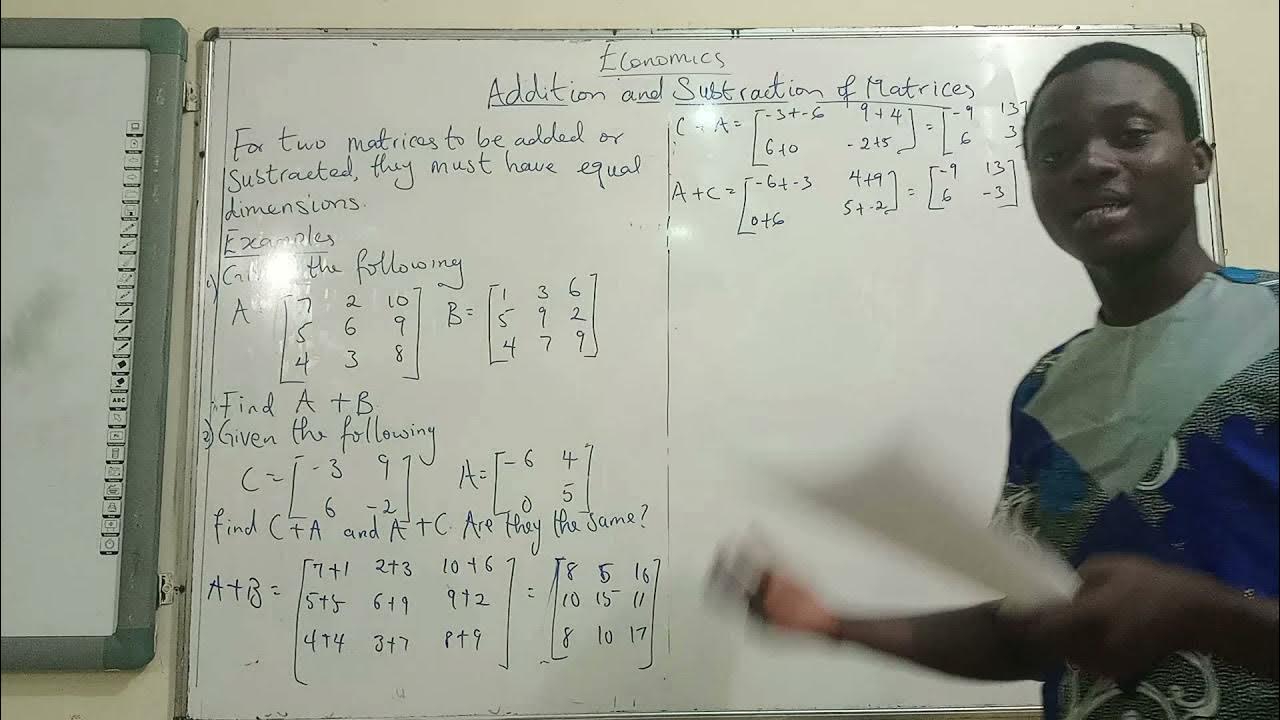 Economics
Addition and Subtraction of Matrices
For two matrices to be added or
Subtracted, they must have equal
dimensions.
Examples
1) the following
A = [7 2 10
5 6 9
4 3 8]
B = [1 3 6
5 9 2
4 7 9]
Find A + B
2) Given the following
C = [-3 9
6 -2]
A = [-6 4
0 5]
find C + A and A + C. Are they the same?
A+B = [7+1 2+3 10+6
5+5 6+9 9+2
4+4 3+7 8+9]
= [8 5 16
10 15 11
8 10 17]
C + A = [-3+-6 9+4
6+0 -2+5]
= [-9 13
6 3
A+C = [-6+-3 4+9
0+6 5+-2]
= [-9 13
6 -3]
ABC